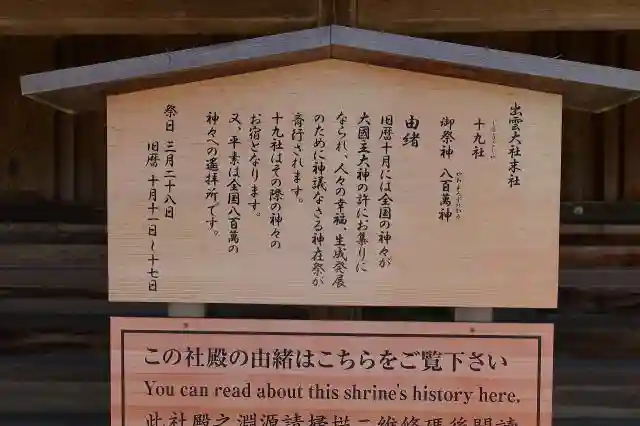 出雲大社末社
十九社
じゅうくしゃ
御祭神 八百萬神
やおよろずのかみ
由緒
旧暦十月には全国の神々が
大國主大神の許にお集りに
なられ、人々の幸福、生成発展
のために神議なさる神在祭が
斉行されます。
十九社はその際の神々の
お宿となります。
又、平素は全国八百萬の
神々への遥拝所です。
祭日 三月二十八日
旧暦 十月十一日～十七日
この社殿の由緒はこちらをご覧下さい
You can read about this shrine's history here.
此社殿之淵源請掃描二維條碼後閲読